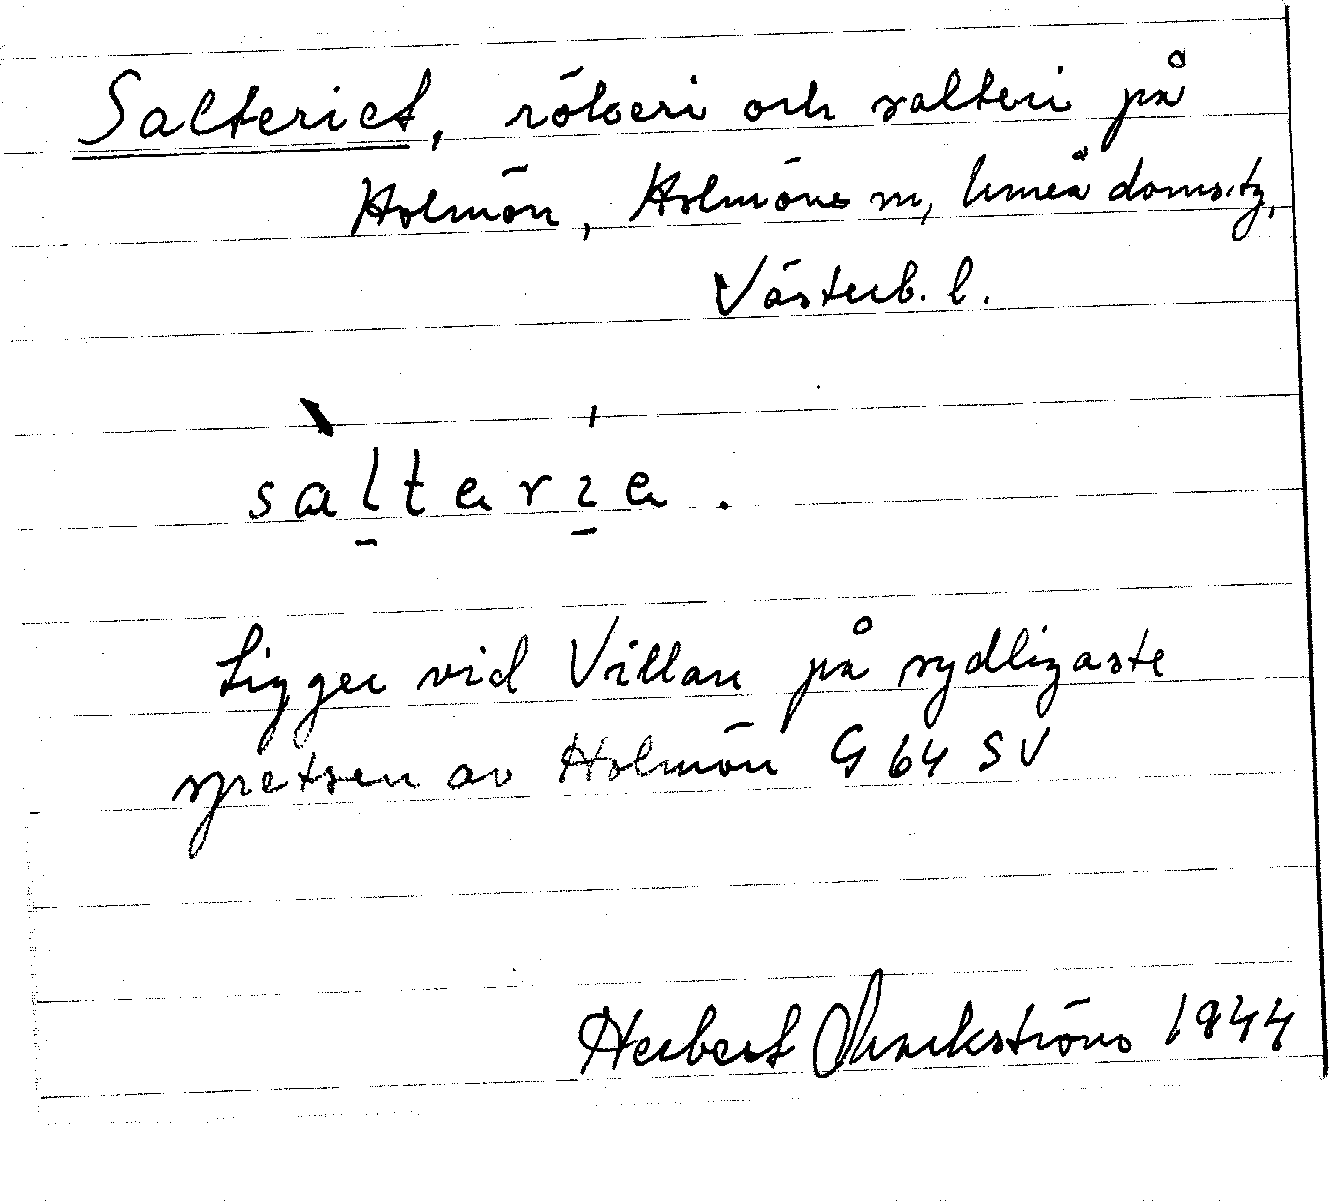 Salteriet, rökeri och salteri på
Holmön, Holmöns sn, Umeå doms.tg,
Västerb. l.
sàḷtarı̱́a .
Ligger vid Villan på sydligaste
spetsen av Holmön G 64 SV
Herbert 1944